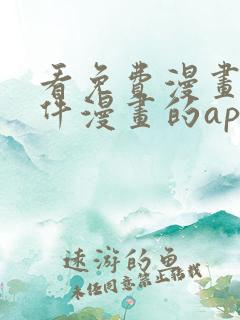 看免费漫畫
件漫畫的ap
远游的鱼
未经同意禁止转载